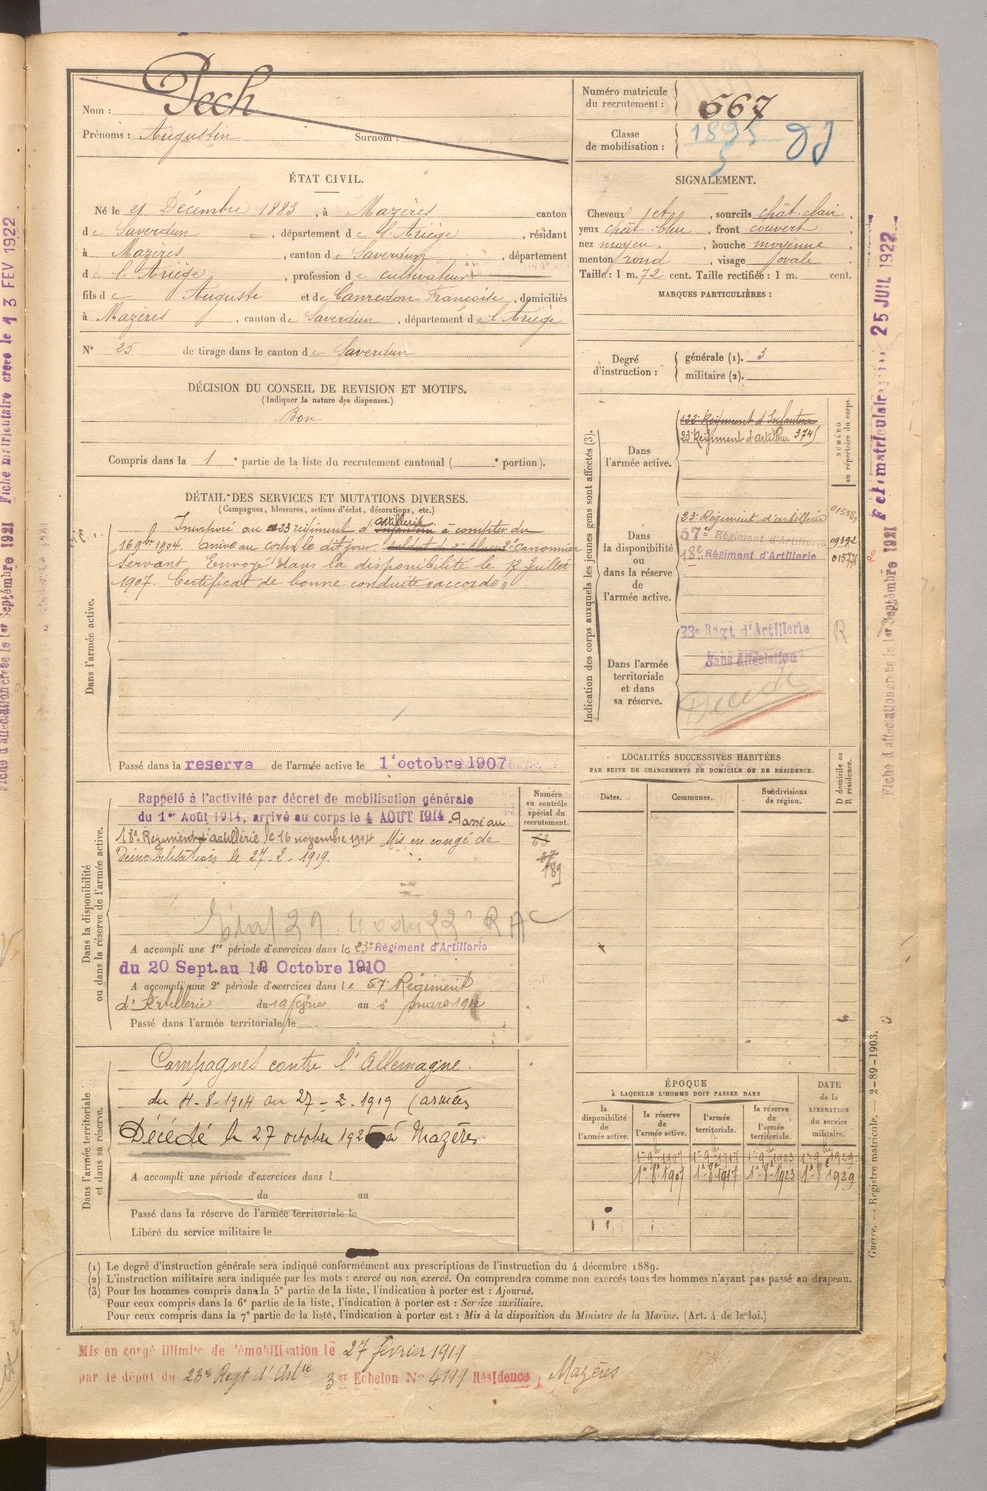 Nom : Pech
Prénoms : Augustin Surnom :
Numéro matricule du recrutement : 667
Classe de mobilisation : 1895
ÉTAT CIVIL.
Né le 21 Décembre 1883, à Mazères canton
de Saverdun, département de l'Ariège, résidant
à Mazères, canton de Saverdun, département
de l'Ariège, profession de cultivateur
fils de Auguste et de Canredon Françoise, domiciliés
à Mazères, canton de Saverdun, département de l'Ariège
N° 25 de tirage dans le canton de Saverdun
SIGNALEMENT.
Cheveux, sourcils chât. clair,
yeux chât. bleu, front couvert
nez moyen, bouche moyenne
menton rond, visage ovale
Taille : 1 m. 72 cent. Taille rectifiée : 1 m. cent.
MARQUES PARTICULIÈRES :
Degré d'instruction : générale (1). 3
militaire (2).
DÉCISION DU CONSEIL DE REVISION ET MOTIFS.
(Indiquer la nature des dispenses.)
Bon
Compris dans la 1e partie de la liste du recrutement cantonal ( e portion).
DÉTAIL DES SERVICES ET MUTATIONS DIVERSES.
(Campagnes, blessures, actions d'éclat, décorations, etc.)
Dans l'armée active.
Incorporé au 23 régiment d'artillerie Infanterie à compter du
16 9bre 1904, arrivé au corps le dit jour. Soldat de 2e classe 2e Canonnier
servant. Envoyé dans la disponibilité le 12 Juillet
1907. Certificat de bonne conduite "accordé"
Passé dans la reserve de l'armée active le 1r octobre 1907
Indication des corps auxquels les jeunes gens sont affectés (3).
NUMÉRO au répertoire du corps.
Dans l'armée active.
122e Régiment d'Infanterie
23e Régiment d'artillerie 374
Dans la disponibilité ou dans la réserve de l'armée active.
23e Régiment d'artillerie
57e Régiment d'Artillerie
18e Régiment d'Artillerie
Dans l'armée territoriale et dans sa réserve.
23e Régt d'Artillerie
Sans Affectation
Décédé
LOCALITÉS SUCCESSIVES HABITÉES
PAR SUITE DE CHANGEMENTS DE DOMICILE OU DE RÉSIDENCE.
D domicile ou R résidence.
Dates. Communes. Subdivisions de région.
Dans la disponibilité ou dans la réserve de l'armée active.
Numéro au contrôle spécial du recrutement.
189
Rappelé à l'activité par décret de mobilisation générale
du 1er Août 1914, arrivé au corps le 4 AOUT 1914 Passé au
18e Régiment d'artillerie le 16 novembre 1914 Mis en congé de
démobilisation le 27-2-1919.
A accompli une 1re période d'exercices dans le 23e Régiment d'Artillerie
du 20 Sept. au 12 Octobre 1910
A accompli une 2e période d'exercices dans le 57 Régiment
d'Artillerie du 19 février au 6 mars 1912
Passé dans l'armée territoriale le
Dans l'armée territoriale et dans sa réserve.
Campagnes contre l'Allemagne.
du 4-8-1914 au 27-2-1919 (armées
Décédé le 27 octobre 192 à Mazères
A accompli une période d'exercices dans l
du au
Passé dans la réserve de l'armée territoriale le
Libéré du service militaire le
ÉPOQUE
À LAQUELLE L'HOMME DOIT PASSER DANS
la disponibilité de l'armée active. la réserve de l'armée active. l'armée territoriale. la réserve de l'armée territoriale. DATE de la LIBÉRATION du service militaire.
1r 9 1907 1r 9 1917 1r 9 1923 1r 9 1929
1r 8 1907 1r 8 1917 1r 8 1923 1r 8 1929
(1) Le degré d'instruction générale sera indiqué conformément aux prescriptions de l'instruction du 4 décembre 1889.
(2) L'instruction militaire sera indiquée par les mots : exercé ou non exercé. On comprendra comme non exercés tous les hommes n'ayant pas passé au drapeau.
(3) Pour les hommes compris dans la 5e partie de la liste, l'indication à porter est : Ajourné.
Pour ceux compris dans la 6e partie de la liste, l'indication à porter est : Service auxiliaire.
Pour ceux compris dans la 7e partie de la liste, l'indication à porter est : Mis à la disposition du Ministre de la Marine. (Art. 4 de la loi.)
Mis en congé illimité de démobilisation le 27 février 1919
par le dépot du 23e Régt d'Artie 3er Echelon No 4119 Résidence, Mazères
Guerre. — Registre matricule. — 2-89-1903.
Fiche matriculaire créée le 13 FEV 1922
Fiche d'affectation créée le 1er Septembre 1921
25 JUIL 1922
Fiche d'affectation créée le 1er Septembre 1921